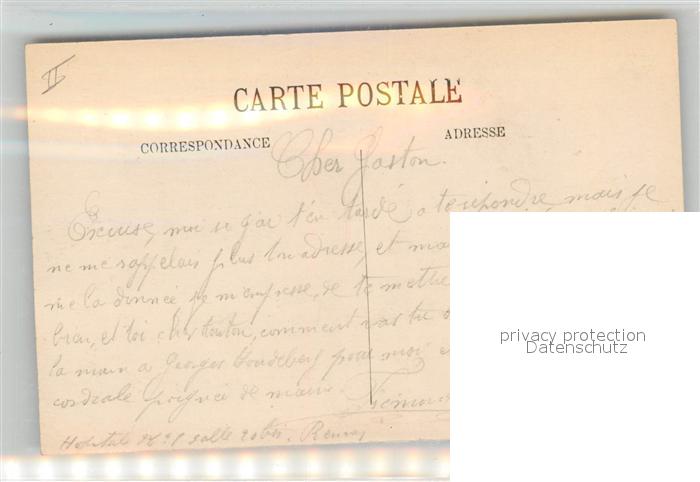 II
CARTE POSTALE
CORRESPONDANCE
ADRESSE
Cher Gaston.
Excuse, moi si j'ai tardé a te répondre mais je
ne me rappelais plus ton adresse, et
me la donnée je m'empresse, de te mettre
bien, et toi cher tonton, comment vas tu
la main a Georges pour moi
cordiale poignée de main.
Hopital salle Rennes
privacy protection
Datenschutz